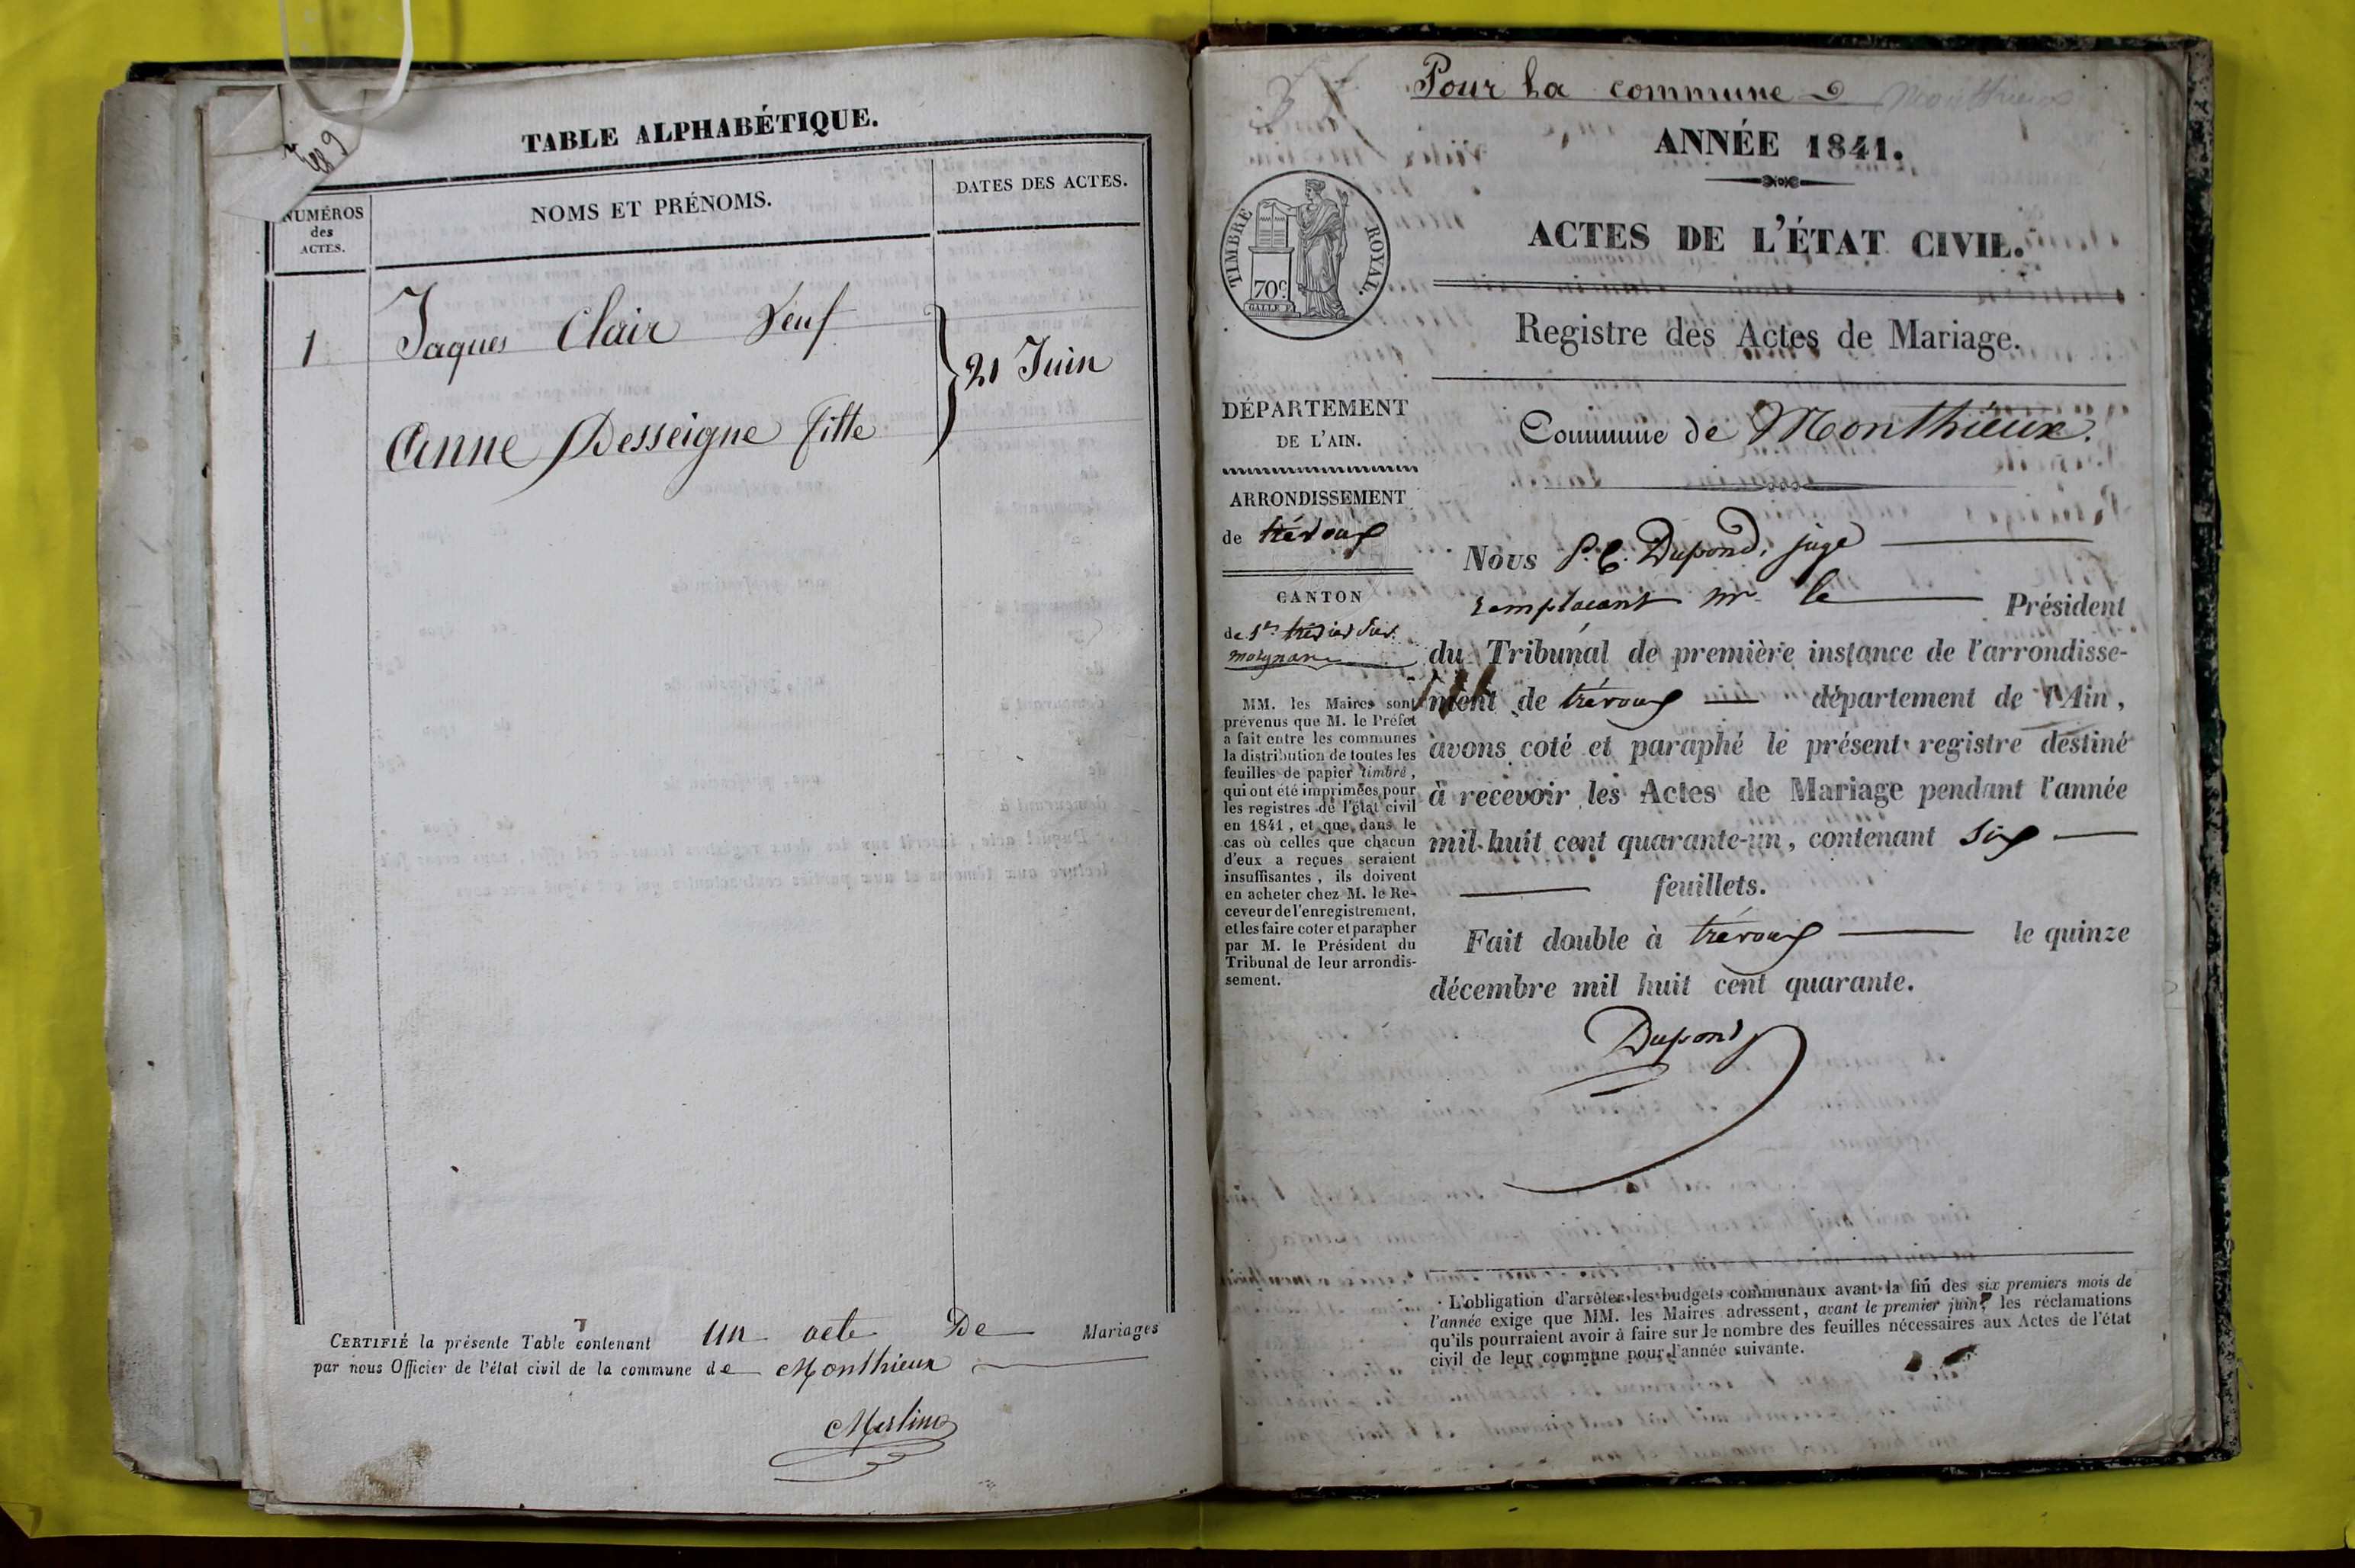 TABLE ALPHABÉTIQUE.
NUMÉROS
des
ACTES.
NOMS ET PRÉNOMS.
DATES DES ACTES.
1
Jaques Clair Veuf
21 Juin
Anne Desseigne fille
CERTIFIÉ la présente Table contenant un acte De Mariages
par nous Officier de l'état civil de la commune de Monthieux
Merlino
Pour la commune Monthieux
ANNÉE 1841.
ACTES DE L'ÉTAT CIVIL.
TIMBRE ROYAL.
70c.
Registre des Actes de Mariage.
Commune de Monthieux.
DÉPARTEMENT
DE L'AIN.
ARRONDISSEMENT
de trévoux
CANTON
de St
MM. les Maires sont
prévenus que M. le Préfet
a fait entre les communes
la distribution de toutes les
feuilles de papier timbré,
qui ont été imprimées pour
les registres de l'état civil
en 1841, et que, dans le
cas où celles que chacun
d'eux a reçues seraient
insuffisantes, ils doivent
en acheter chez M. le Re-
ceveur de l'enregistrement,
et les faire coter et parapher
par M. le Président du
Tribunal de leur arrondis-
sement.
Nous P. C. Dupond, juge
remplacant mr le Président
du Tribunal de première instance de l'arrondisse-
ment de trévoux département de l'Ain,
avons coté et paraphé le présent registre destiné
à recevoir les Actes de Mariage pendant l'année
mil huit cent quarante-un, contenant six
feuillets.
Fait double à trévoux le quinze
décembre mil huit cent quarante.
Dupond
L'obligation d'arrêter les budgets communaux avant la fin des six premiers mois de
l'année exige que MM. les Maires adressent, avant le premier juin, les réclamations
qu'ils pourraient avoir à faire sur le nombre des feuilles nécessaires aux Actes de l'état
civil de leur commune pour l'année suivante.